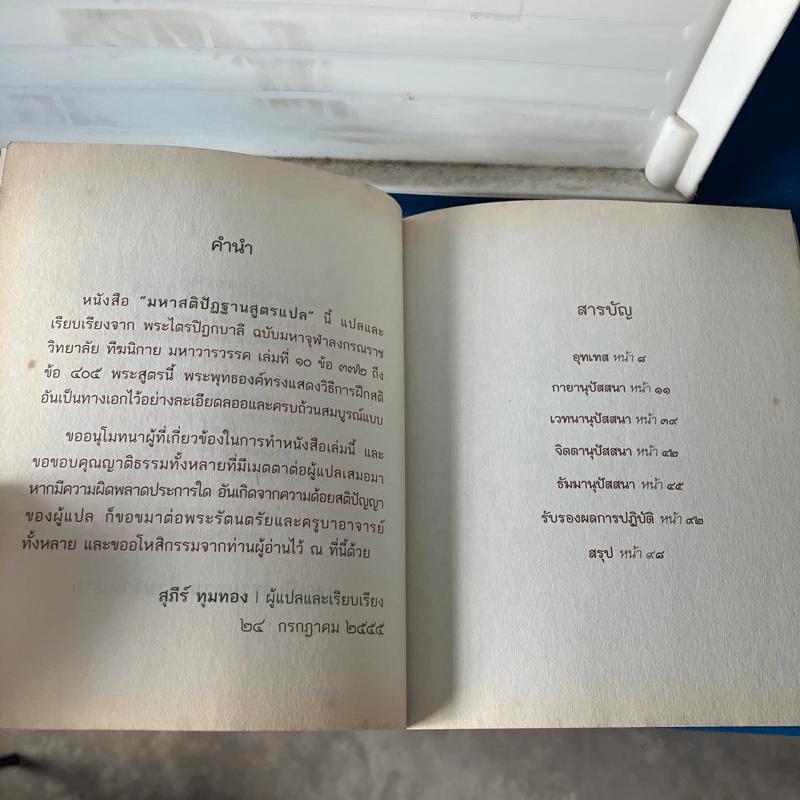 คำนำ
หนังสือ “มหาสติปัฏฐานสูตรแปล” นี้ แปลและ
เรียบเรียงจาก พระไตรปิฎกบาลี ฉบับมหาจุฬาลงกรณราช
วิทยาลัย ทีฆนิกาย มหาวารวรรค เล่มที่ ๑๐ ข้อ ๓๗๒ ถึง
ข้อ ๔๐๕ พระสูตรนี้ พระพุทธองค์ทรงแสดงวิธีการฝึกสติ
อันเป็นทางเอกไว้อย่างละเอียดลออและครบถ้วนสมบูรณ์แบบ
ขออนุโมทนาผู้ที่เกี่ยวข้องในการทำหนังสือเล่มนี้ และ
ขอขอบคุณญาติธรรมทั้งหลายที่มีเมตตาต่อผู้แปลเสมอมา
หากมีความผิดพลาดประการใด อันเกิดจากความด้อยสติปัญญา
ของผู้แปล ก็ขอขมาต่อพระรัตนตรัยและครูบาอาจารย์
ทั้งหลาย และขออโหสิกรรมจากท่านผู้อ่านไว้ ณ ที่นี้ด้วย
สุภีร์ ทุมทอง | ผู้แปลและเรียบเรียง
๒๔ กรกฎาคม ๒๕๕๕
สารบัญ
อุทเทส หน้า ๘
กายานุปัสสนา หน้า ๑๑
เวทนานุปัสสนา หน้า ๓๙
จิตตานุปัสสนา หน้า ๔๒
ธัมมานุปัสสนา หน้า ๔๕
รับรองผลการปฏิบัติ หน้า ๙๒
สรุป หน้า ๙๘